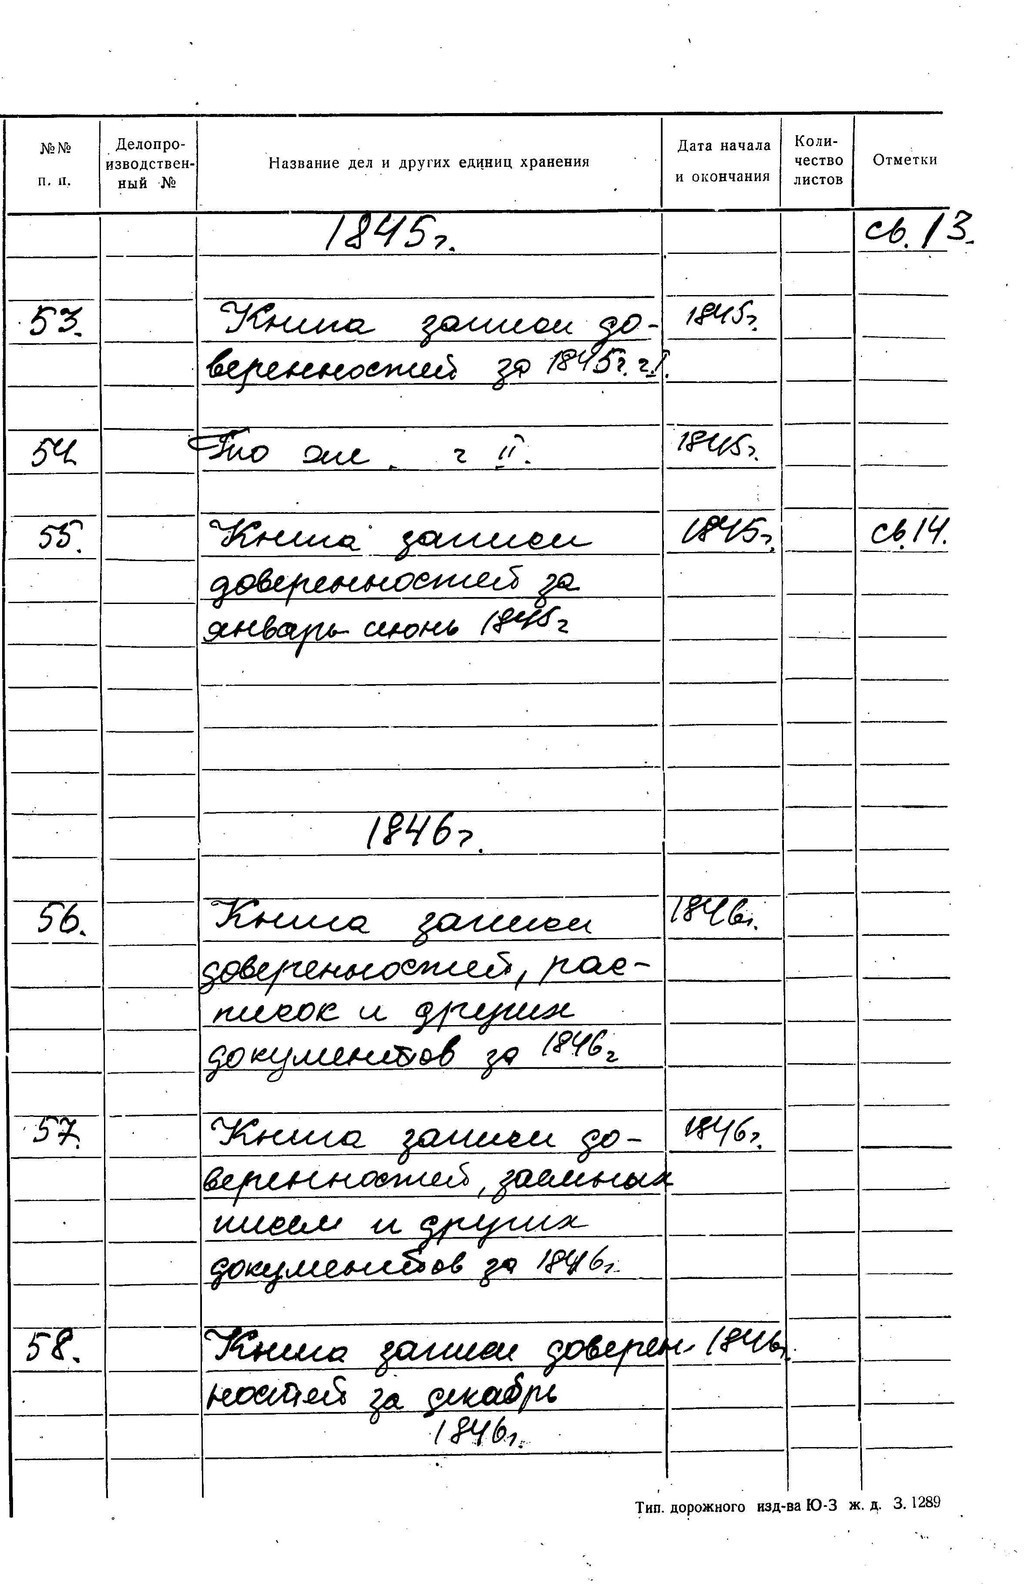 №№ п. п. Делопро-изводствен-ный № Название дел и других единиц хранения Дата начала и окончания Коли-чество листов Отметки
1845г. св. 13.
53. Книга записи до- 1845г.
веренностей за 1845г. ч. I.
54. То же. ч II. 1845г.
55. Книга записи 1845г. св. 14.
доверенностей за
январь-июнь 1845г
1846г.
56. Книга записи 1846г.
доверенностей, рас-
писок и других
документов за 1846г
57. Книга записи до- 1846г.
веренностей, заемных
писем и других
документов за 1846г.
58. Книга записи доверен- 1846г.
ностей за декабрь
1846г.
Тип. дорожного изд-ва Ю-З ж. д. З. 1289